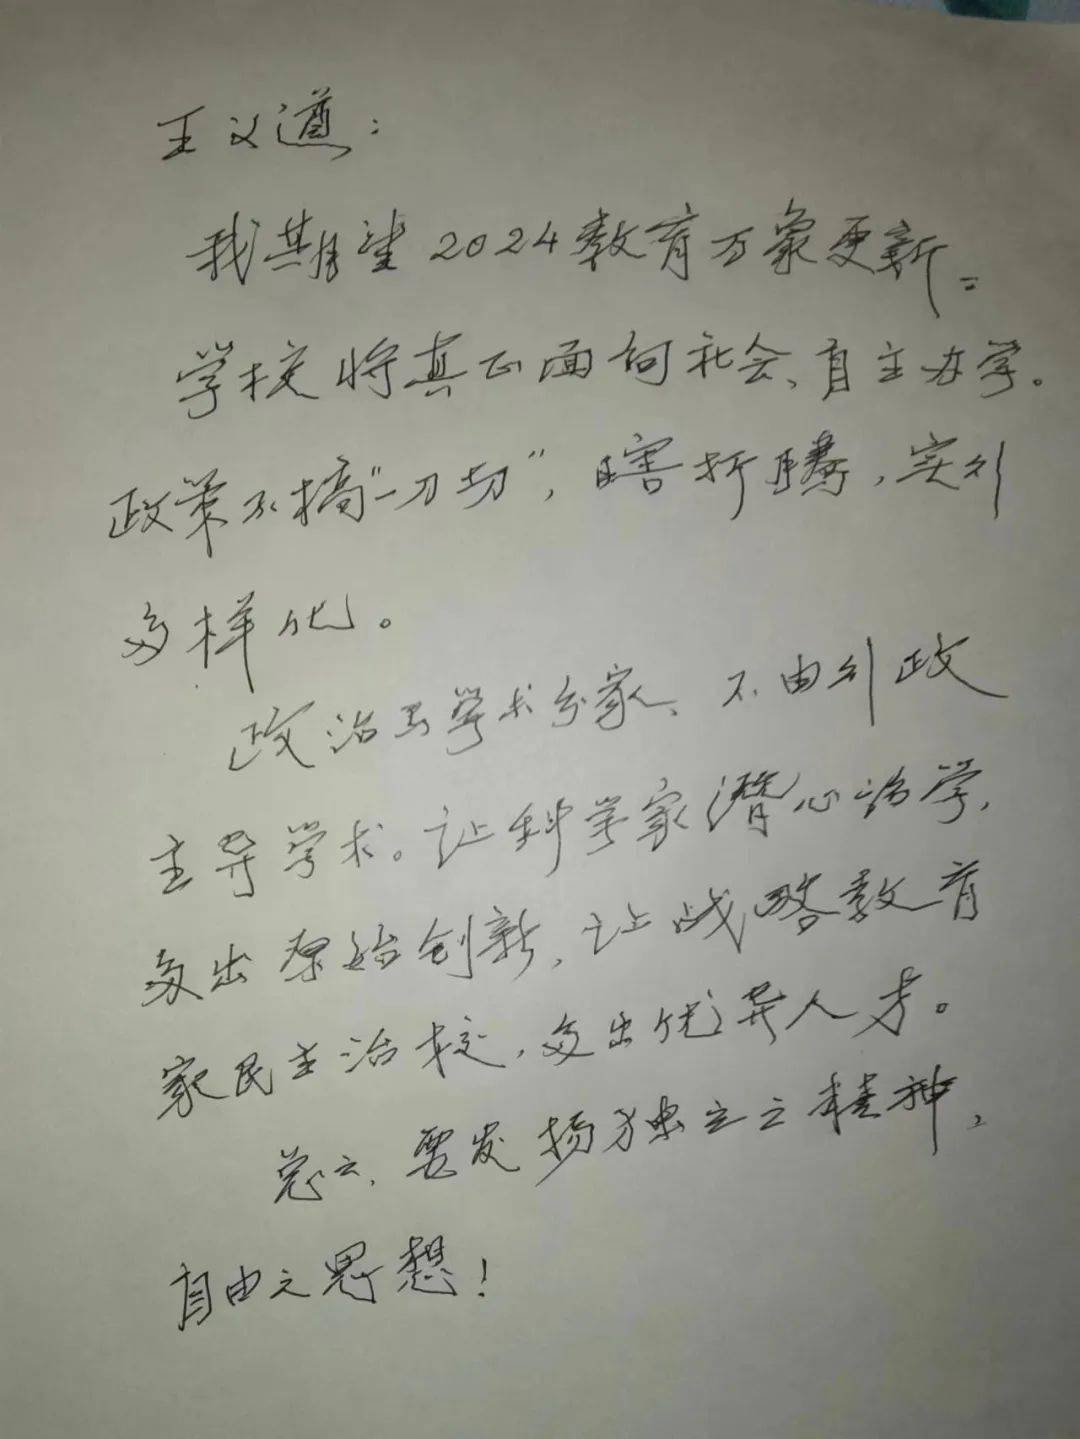 王义遒:
我期望2024教育万象更新。
学校将真正面向社会、自主办学。
政策不搞“一刀切”,瞎折腾,实行
多样化。
政治与学术分家、不由行政
主导学术。让科学家潜心治学,
多出原始创新,让战略教育
家民主治校,多出优异人才。
总之,要发扬独立之精神、
自由之思想!